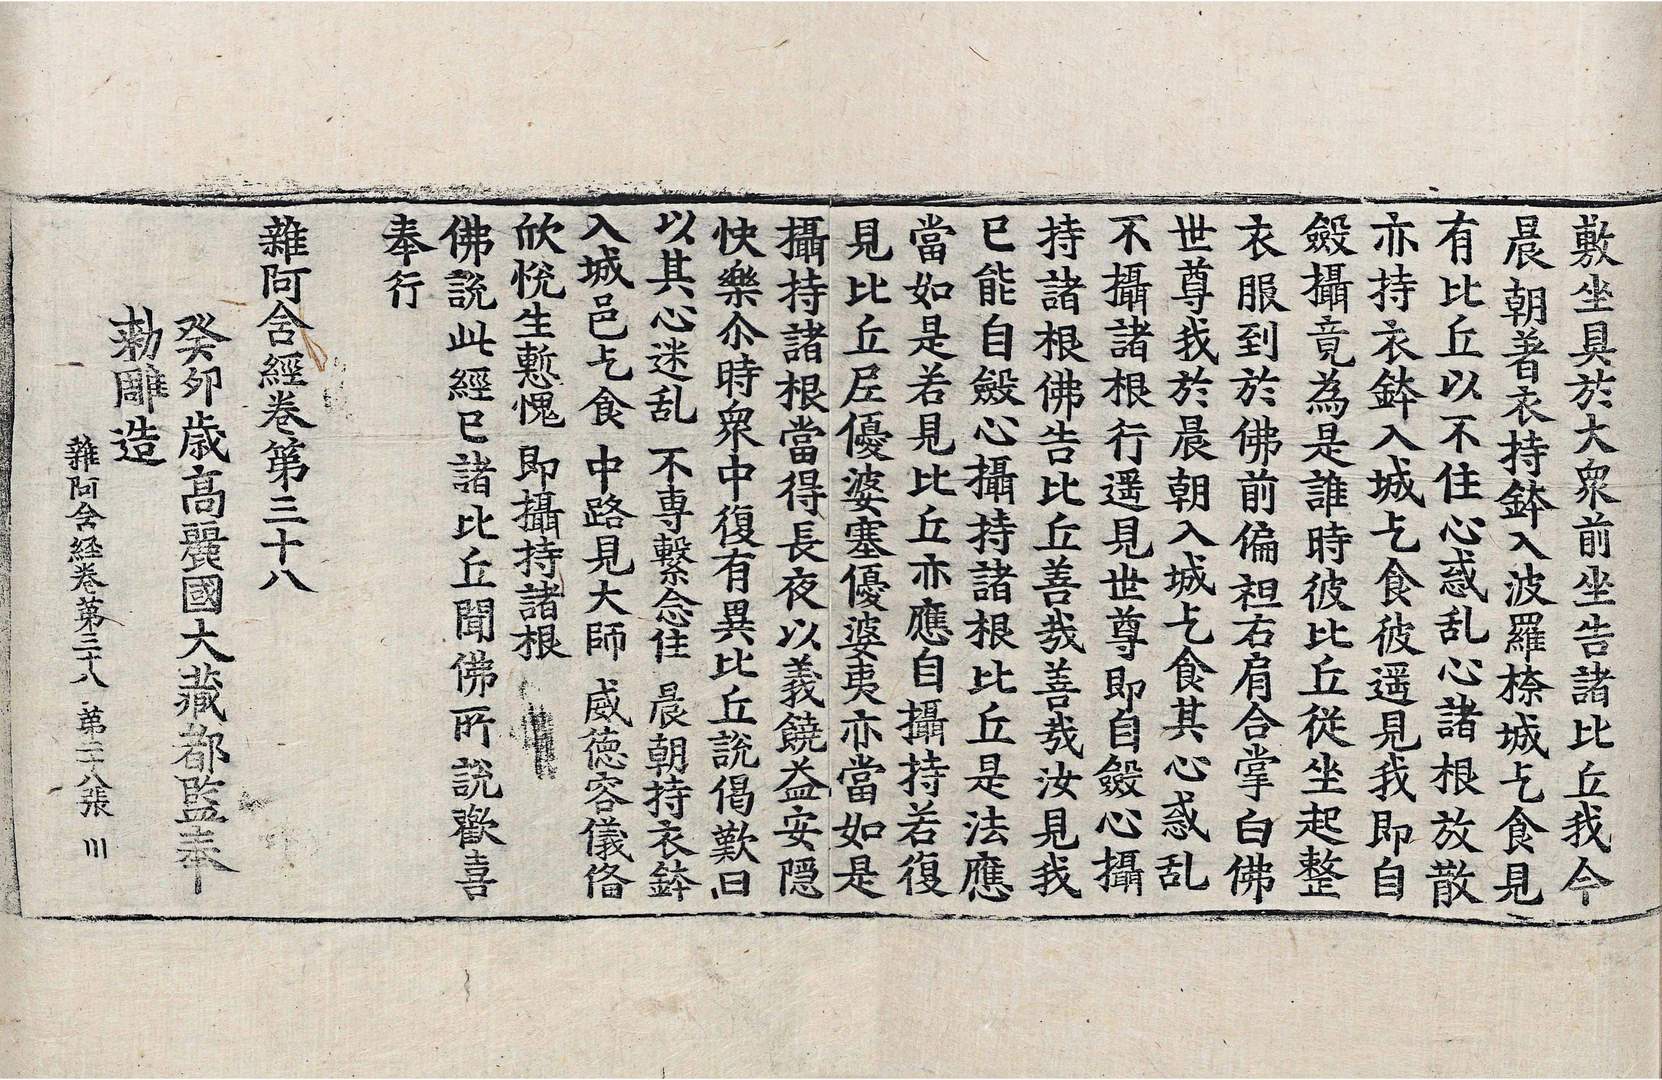 敷坐具於大衆前坐告諸比丘我今
晨朝著衣持鉢入波羅㮈城乞食見
有比丘以不住心惑乱心諸根放散
亦持衣鉢入城乞食彼遥見我即自
斂攝竟為是誰時彼比丘從坐起整
衣服到於佛前偏袒右肩合掌白佛
世尊我於晨朝入城乞食其心惑乱
不攝諸根行遥見世尊即自斂心攝
持諸根佛告比丘善哉善哉汝見我
已能自斂心攝持諸根比丘是法應
當如是若見比丘亦應自攝持若復
見比丘尼優婆塞優婆夷亦當如是
攝持諸根當得長夜以義饒益安隠
快樂尒時衆中復有異比丘說偈歎曰
以其心迷乱 不専繫念住 晨朝持衣鉢
入城邑乞食 中路見大師 威徳容儀俻
欣悅生慙愧 即攝持諸根
佛說此經已諸比丘聞佛所說歡喜
奉行
雜阿含經卷第三十八
癸卯歳高麗國大藏都監奉
勅雕造
雜阿含経卷第三十八 第二十八張 川